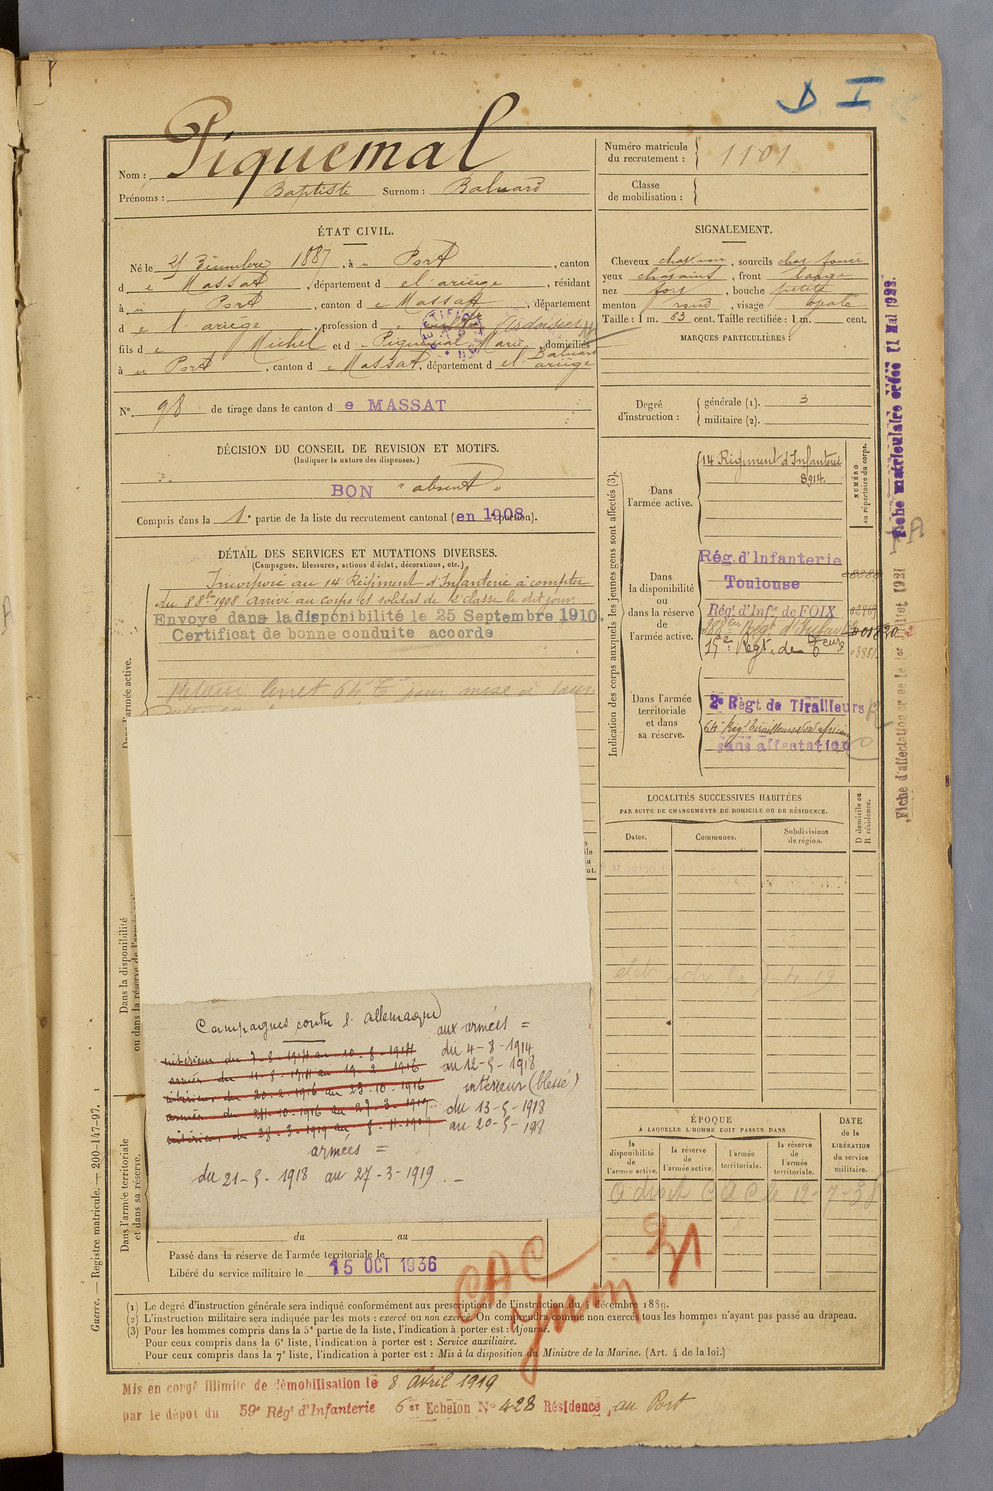 D I
Piquemal
Nom :
Prénoms : Baptiste Surnom : Baluard
Numéro matricule
du recrutement : 1101
Classe
de mobilisation :
ÉTAT CIVIL.
Né le 25 Décembre 1887, à Port, canton
de Massat, département de l'ariège, résidant
à Port, canton de Massat, département
de l'ariège, profession de
fils de Michel et de Piquemal Marie, domiciliés
à Port, canton de Massat, département de l'ariège
Baluard
N° 98 de tirage dans le canton de MASSAT
SIGNALEMENT.
Cheveux, sourcils chat. foncé
yeux chatains, front large
nez fort, bouche petite
menton rond, visage ovale
Taille : 1 m. 63 cent. Taille rectifiée : 1 m. cent.
MARQUES PARTICULIÈRES :
Degré
d'instruction :
générale (1). 3
militaire (2).
DÉCISION DU CONSEIL DE REVISION ET MOTIFS.
(Indiquer la nature des dispenses.)
BON "absent"
Compris dans la 1e partie de la liste du recrutement cantonal (en 1908).
DÉTAIL DES SERVICES ET MUTATIONS DIVERSES.
(Campagnes, blessures, actions d'éclat, décorations, etc.)
Incorporé au 14 Régiment d'Infanterie à compter
du 8 8bre 1908 arrivé au corps et soldat de 2e classe le dit jour
Envoyé dans la disponibilité le 25 Septembre 1910.
Certificat de bonne conduite accordé
Indication des corps auxquels les jeunes gens sont affectés (3).
NUMÉRO
au répertoire du corps.
Dans
l'armée active.
14 Régiment d'Infanterie
8914
Dans
la disponibilité
ou
dans la réserve
de
l'armée active.
Rég. d'Infanterie
Toulouse
Rég. d'Infie de FOIX
Dans l'armée
territoriale
et dans
sa réserve.
2e Règt de Tirailleurs
sans affectation
Fiche matriculaire créée 11 Mai 1922.
Fiche d'affectation créée le 1er Juillet 1921
LOCALITÉS SUCCESSIVES HABITÉES
PAR SUITE DE CHANGEMENTS DE DOMICILE OU DE RÉSIDENCE.
Dates.
Communes.
Subdivisions
de région.
D domicile ou
R résidence.
Dans la disponibilité
ou dans la réserve de l'armée active.
Campagnes contre l'allemagne
intérieur du 3-8-1914 au 10-8-1914
armées du 11-8-1914 au 19-2-1916
intérieur du 20-2-1916 au 23-10-1916
armées du 24-10-1916 au 27-3-1919
intérieur du 28-3-1919 au
aux armées =
du 4-8-1914
au 12-5-1918
intérieur (blessé)
du 13-5-1918
au 20-5-1918
armées =
du 21-5-1918 au 27-3-1919.-
Dans l'armée territoriale
et dans sa réserve.
ÉPOQUE
À LAQUELLE L'HOMME DOIT PASSER DANS
la
disponibilité
de
l'armée active.
la réserve
de
l'armée active.
l'armée
territoriale.
la réserve
de
l'armée
territoriale.
DATE
de la
LIBÉRATION
du service
militaire.
du au
Passé dans la réserve de l'armée territoriale le
Libéré du service militaire le 15 OCT 1936
CAC
21
(1) Le degré d'instruction générale sera indiqué conformément aux prescriptions de l'instruction du 4 décembre 1889.
(2) L'instruction militaire sera indiquée par les mots : exercé ou non exercé. On comprendra comme non exercés tous les hommes n'ayant pas passé au drapeau.
(3) Pour les hommes compris dans la 5e partie de la liste, l'indication à porter est : Ajourné.
Pour ceux compris dans la 6e liste, l'indication à porter est : Service auxiliaire.
Pour ceux compris dans la 7e liste, l'indication à porter est : Mis à la disposition du Ministre de la Marine. (Art. 4 de la loi.)
Guerre. — Registre matricule. — 200-147-97.
Mis en congé illimité de démobilisation le 8 avril 1919
par le dépôt du 59e Rég. d'Infanterie 6 Echelon No 428 Résidence au Port